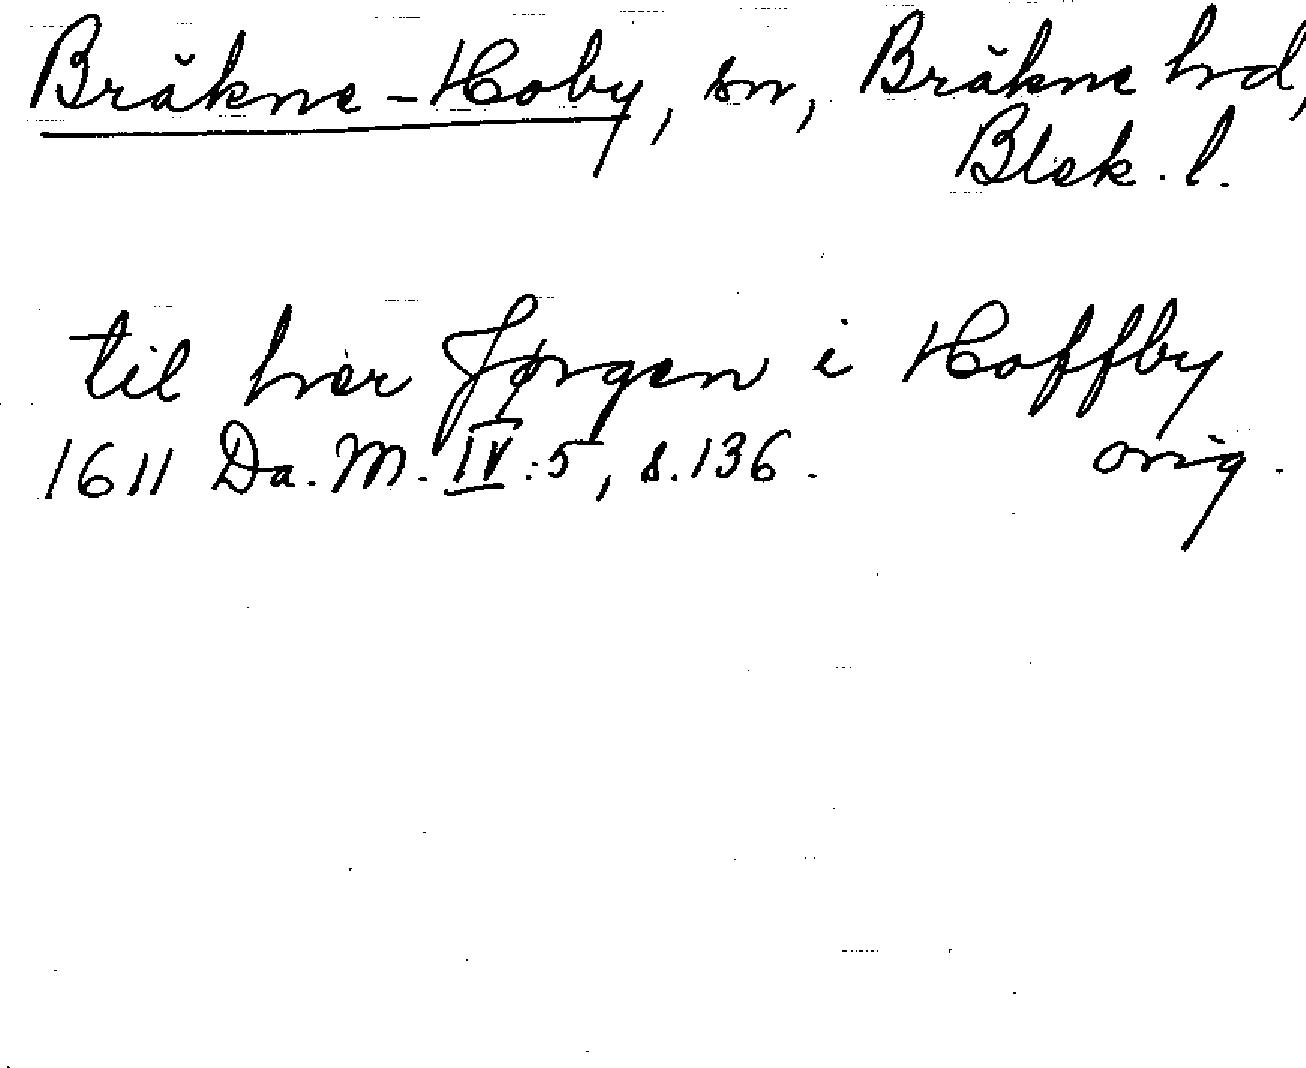 Bräkne-Hoby, sn, Bräkne hd,
Blek. l.
til her Jørgen i Hoffby
1611 Da. M. IV:5, s. 136. orig.